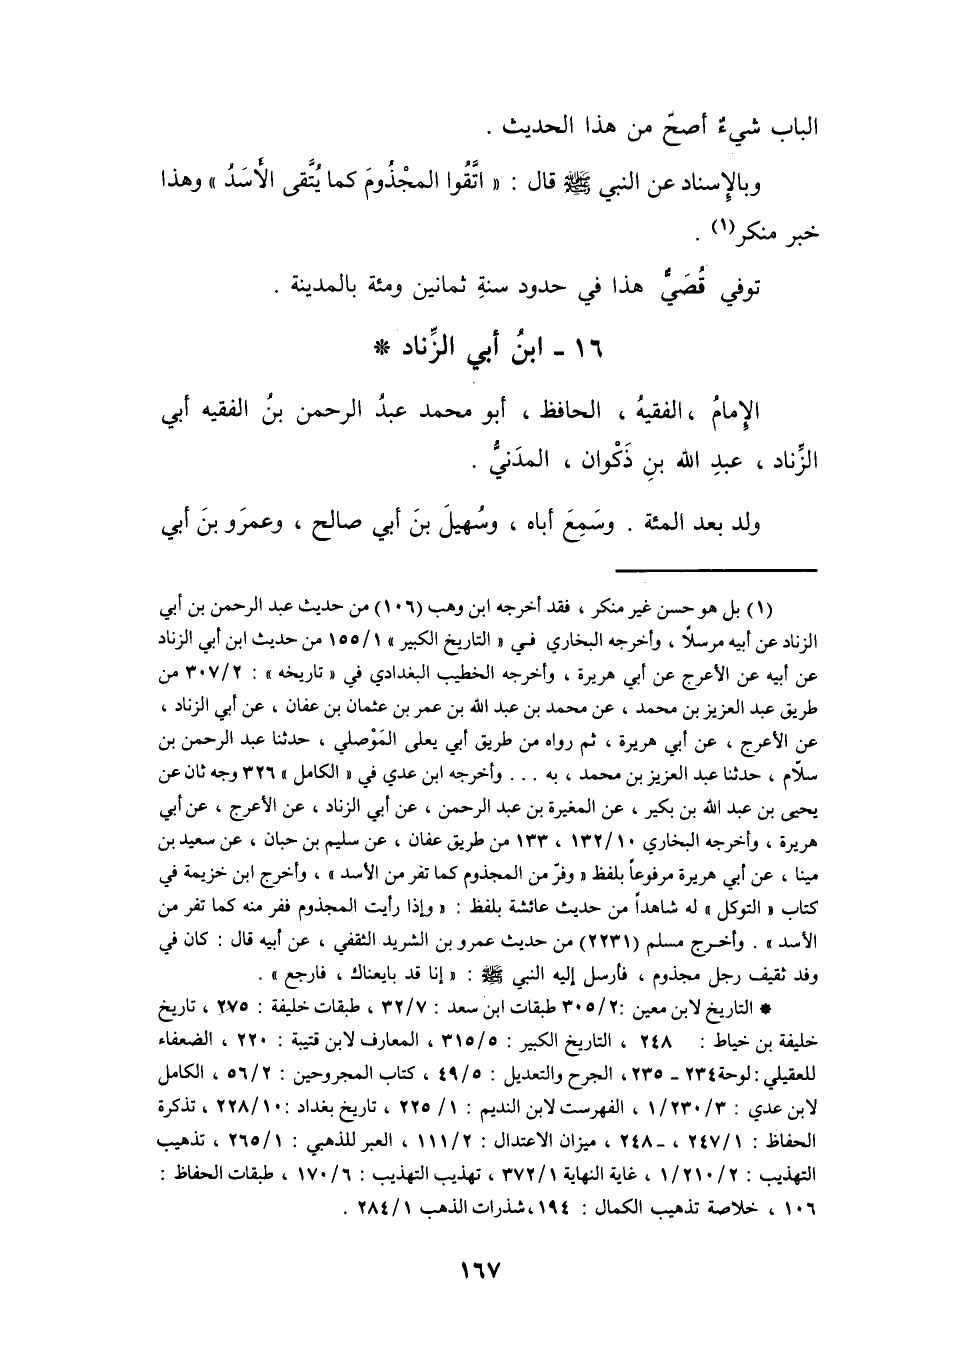 الباب شيءٌ أصحّ من هذا الحديث .
وبالإسناد عن النبي ﷺ قال : « اتَّقُوا المجْذُومَ كما يُتَّقى الأَسَدُ » وهذا
خبر منكر(١) .
توفي قُصَيٌّ هذا في حدود سنةِ ثمانين ومئة بالمدينة .
١٦ - ابنُ أبي الزِّناد *
الإِمامُ ، الفقيهُ ، الحافظ ، أبو محمد عبدُ الرحمن بنُ الفقيه أبي
الزِّناد ، عبدِ الله بنِ ذَكْوان ، المدَنيُّ .
ولد بعد المئة . وسَمِعَ أباه ، وسُهيلَ بنَ أبي صالح ، وعمرَو بنَ أبي
(١) بل هو حسن غير منكر ، فقد أخرجه ابن وهب (١٠٦) من حديث عبد الرحمن بن أبي
الزناد عن أبيه مرسلاً ، وأخرجه البخاري في « التاريخ الكبير » ١٥٥/١ من حديث ابن أبي الزناد
عن أبيه عن الأعرج عن أبي هريرة ، وأخرجه الخطيب البغدادي في « تاريخه » : ٣٠٧/٢ من
طريق عبد العزيز بن محمد ، عن محمد بن عبد الله بن عمر بن عثمان بن عفان ، عن أبي الزناد ،
عن الأعرج ، عن أبي هريرة ، ثم رواه من طريق أبي يعلى المَوْصلي ، حدثنا عبد الرحمن بن
سلّام ، حدثنا عبد العزيز بن محمد ، به ... وأخرجه ابن عدي في « الكامل » ٣٢٦ وجه ثان عن
يحيى بن عبد الله بن بكير ، عن المغيرة بن عبد الرحمن ، عن أبي الزناد ، عن الأعرج ، عن أبي
هريرة ، وأخرجه البخاري ١٣٢/١٠ ، ١٣٣ من طريق عفان ، عن سليم بن حبان ، عن سعيد بن
مينا ، عن أبي هريرة مرفوعاً بلفظ « وفرّ من المجذوم كما تفر من الأسد » ، وأخرج ابن خزيمة في
كتاب « التوكل » له شاهداً من حديث عائشة بلفظ : « وإذا رأيت المجذوم ففر منه كما تفر من
الأسد » . وأخرج مسلم (٢٢٣١) من حديث عمرو بن الشريد الثقفي ، عن أبيه قال : كان في
وفد ثقيف رجل مجذوم ، فأرسل إليه النبي ﷺ : « إنا قد بايعناك ، فارجع » .
* التاريخ لابن معين :٣٠٥/٢ طبقات ابن سعد : ٣٢/٧ ، طبقات خليفة : ٢٧٥ ، تاريخ
خليفة بن خياط : ٢٤٨ ، التاريخ الكبير : ٣١٥/٥ ، المعارف لابن قتيبة : ٢٢٠ ، الضعفاء
للعقيلي : لوحة ٢٣٤ - ٢٣٥ ، الجرح والتعديل : ٤٩/٥ ، كتاب المجروحين : ٥٦/٢ ، الكامل
لابن عدي : ١/٢٣٠/٣ ، الفهرست لابن النديم : ٢٢٥ /١ ، تاريخ بغداد :٢٢٨/١٠ ، تذكرة
الحفاظ : ٢٤٧/١ ، - ٢٤٨ ، ميزان الاعتدال : ١١١/٢ ، العبر للذهبي : ٢٦٥/١ ، تذهيب
التهذيب : ١/٢١٠/٢ ، غاية النهاية ٣٧٢/١ ، تهذيب التهذيب : ١٧٠/٦ ، طبقات الحفاظ :
١٠٦ ، خلاصة تذهيب الكمال : ١٩٤ ،شذرات الذهب ٢٨٤/١ .
١٦٧